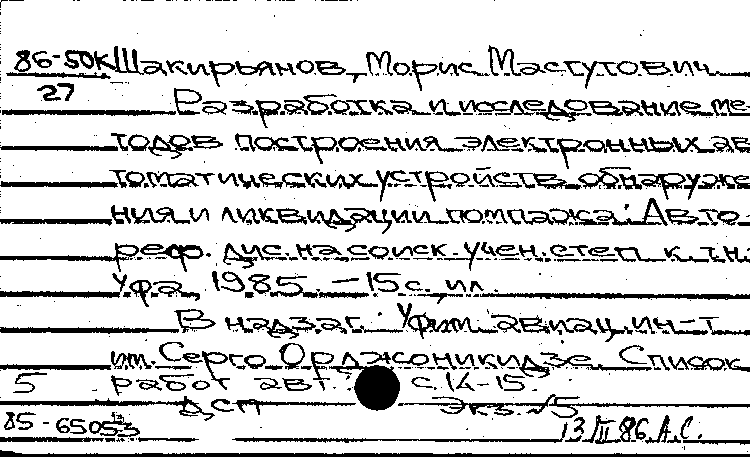 86-50К Шакирьянов, Морис Масгутович
27
Разработка и исследование ме-
тодов построения электронных ав-
томатических устройств обнаруже-
ния и ликвидации помпажа: Авто-
реф. дис. на соиск. учен. степ. к.т.н.
Уфа, 1985. - 15 с., ил.
В надзаг.: Уфим. авиац. ин-т
им. Серго Орджоникидзе. Список
5 работ авт.: с. 14-15.
ДСП Экз. №5
85-65053
13 III 86. А.С.